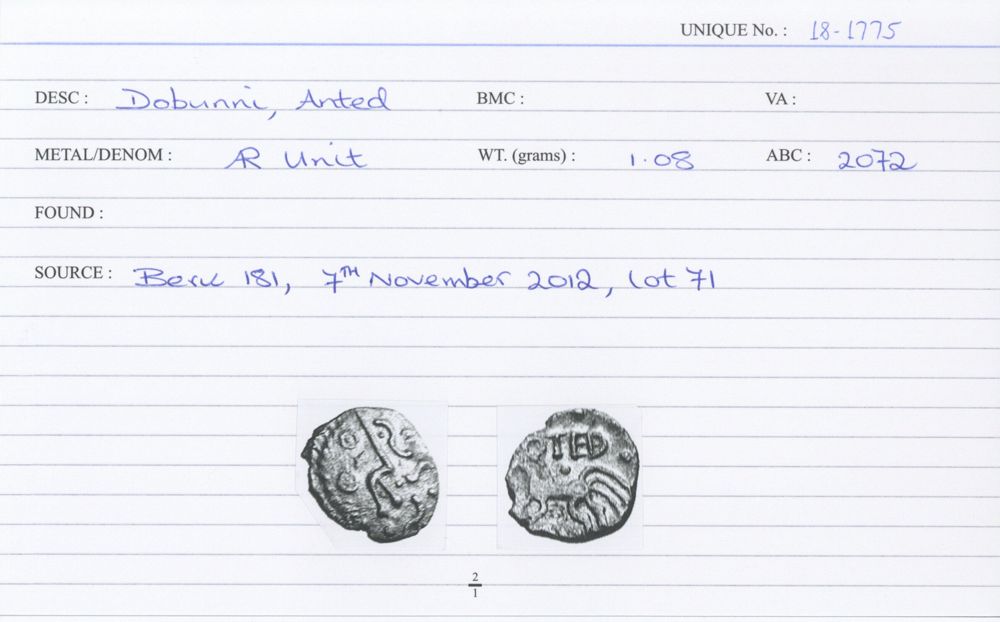 UNIQUE No. : 18-1775
DESC : Dobunni, Anted BMC : VA :
METAL/DENOM : AR Unit WT. (grams) : 1.08 ABC : 2072
FOUND :
SOURCE : Berk 181, 7TH November 2012, lot 71
TED
2
1